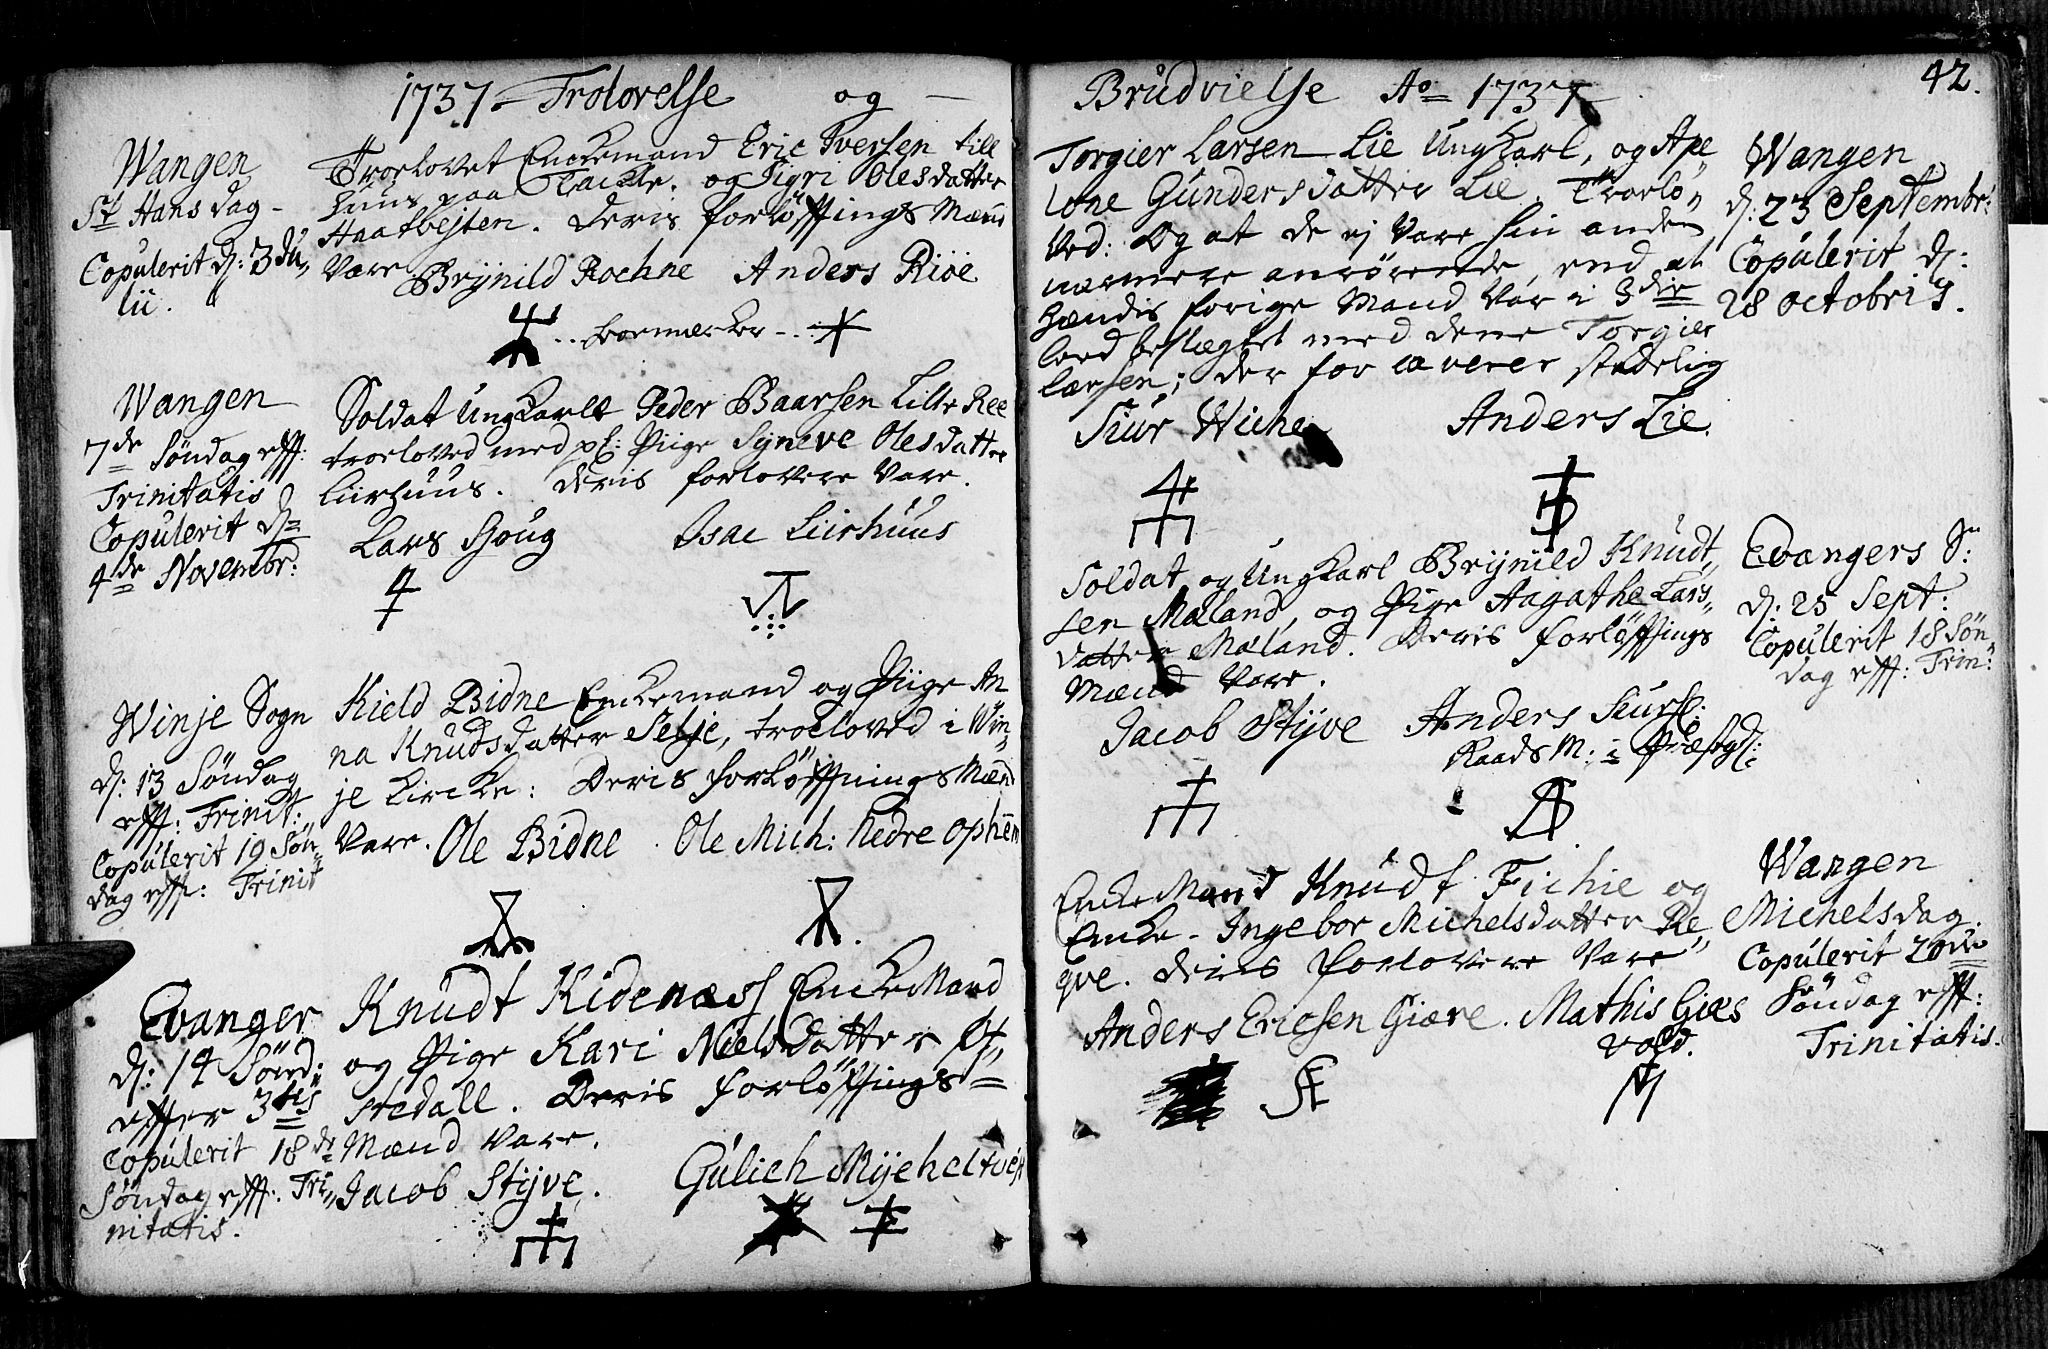 1737 – Trolovelse og –
Wangen
St Hans dag –
Copulerit d: 3 Ju„
lii.
Troelovet Enckemand Eric Iversen till
huus paa Flackte. og Sigri Olesdatter
Haatvejten. Deris forløffings Mænd
Vare Brynild Rochne Anders Riøe
.. boemærcker - .
Wangen
7de Søndag eff:
Trinitatis
Copulerit d:
4de Novembr:
Soldat Ungkarll Peder Baarsen Lille Ree
troeloved med pl: Piige Syneve Olesdatter
Liirhuus. Deris forlovere Vare.
Lars Gjoug Isac Liirhuus
Winje Sogn
d: 13 Søndag
eff: Trinit:
Copulerit 19 Søn„
dag eff: Trinit
Kield Bidne Enckemand og Piige An
na Knudsdatter Selje, troeloved i Win„
je Kircke: Deris forløffnings Mænd
Vare. Ole Bidne. Ole Mich: Nedre Ophēm
Evanger
d: 14 Sønd:
effter 3tis
Copulerit 18de
Søndag eff: Tri„
nitatis.
Knudt Kidenæss EnckeMand
og Pige Kari Nielsdatter Øf„
stedall. Deris forløffings=
Mænd Vare.
Jacob Stÿve. Gulich Mÿcheltvejt
Brudvielse Ao 1737
42.
Torgier Larsen Lie Ungkarl, og Ape
lone Gundersdatter Lie. Troelø„
ved: Og at de ej Vare hin anden
nærmere anrørende, end at
hændis forige Mand Var i 3die
leed beslægtet med dene Torgier
Larsen; der for caverer stedelig
Siur Wiche Anders Lie.
Wangen
d: 23 Septembr:
Copulerit d:
28 octobris.
Soldat og Ungkarl Brynild Knudt„
sen Mæland, og Pige Aagathe Lars„
datter Mæland. Deris forløffings
Mænd Vare.
Jacob Stÿve Anders Siurs:
Raads M: i Præstgd:
Evangers S:
d: 25 Sept:
Copulerit 18 Søn
dag eff: Trin:
EnckeMand Knudt Fichie og
Encke. Ingebor Michelsdatter Re„
qve. deris forlovere Vare
Anders Ericsen Giære. Mathis Gies
vold.
Wangen
Michelsdag.
Copulerit 20de
Søndag eff:
Trinitatis.